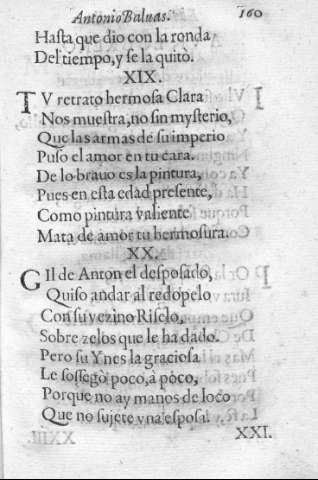 Antonio Baluas. 160
Hasta que dio con la ronda
Del tiempo, y se la quitò.
XIX.
TV retrato hermosa Clara
Nos muestra, no sin mysterio,
Que las armas de su imperio
Puso el amor en tu cara.
De lo brauo es la pintura,
Pues en esta edad presente,
Como pintura valiente
Mata de amor tu hermosura.
XX.
GIl de Anton el desposado,
Quiso andar al redopelo
Con su vezino Riselo,
Sobre zelos que le ha dado.
Pero su Ynes la graciosa
Le sossegò poco, à pòco,
Porque no ay manos de loco
Que no sujete vna esposa.
XXI.